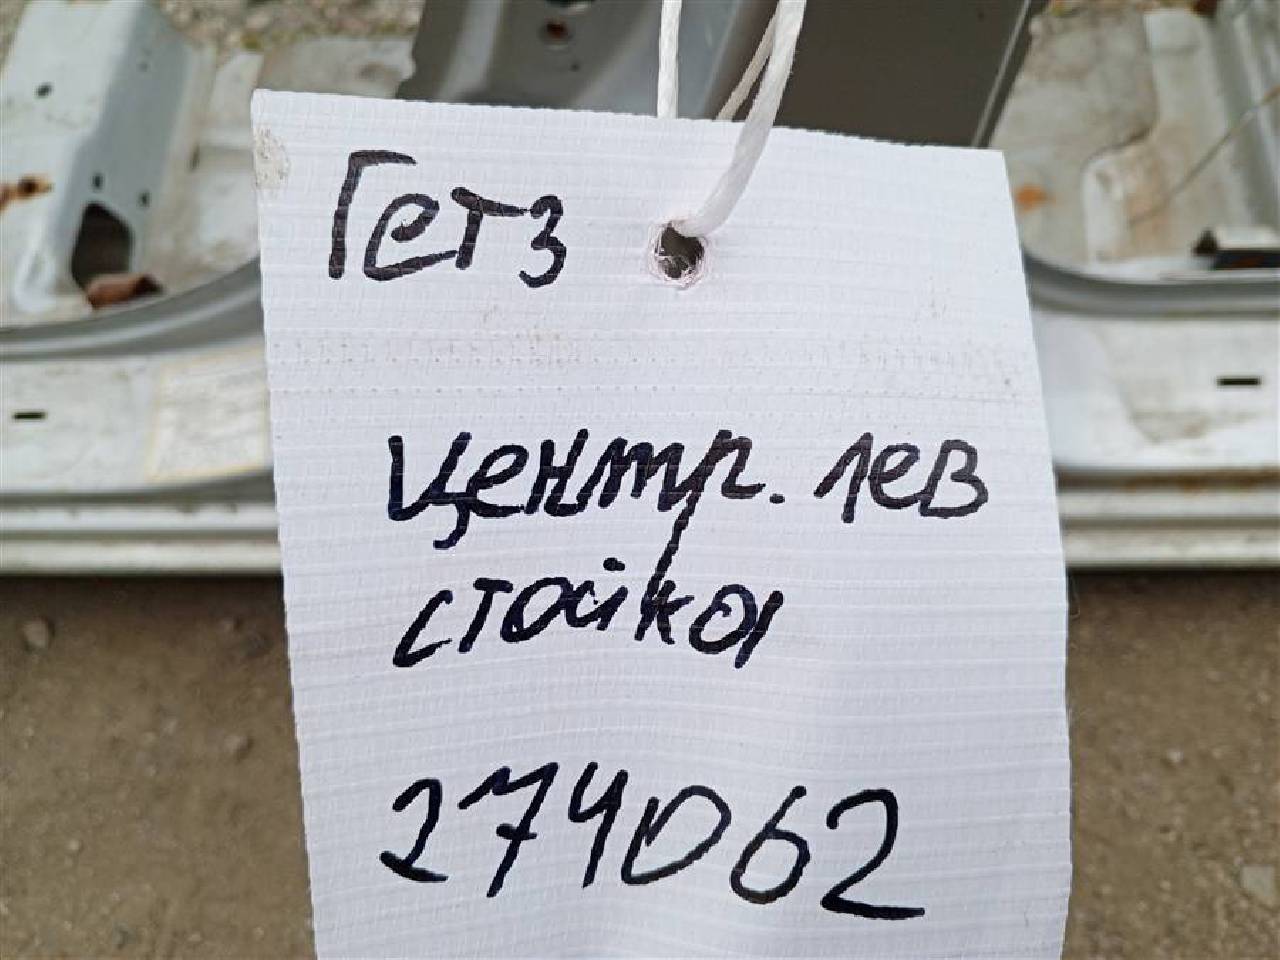 Гетз
центр. лев
стойка
274062